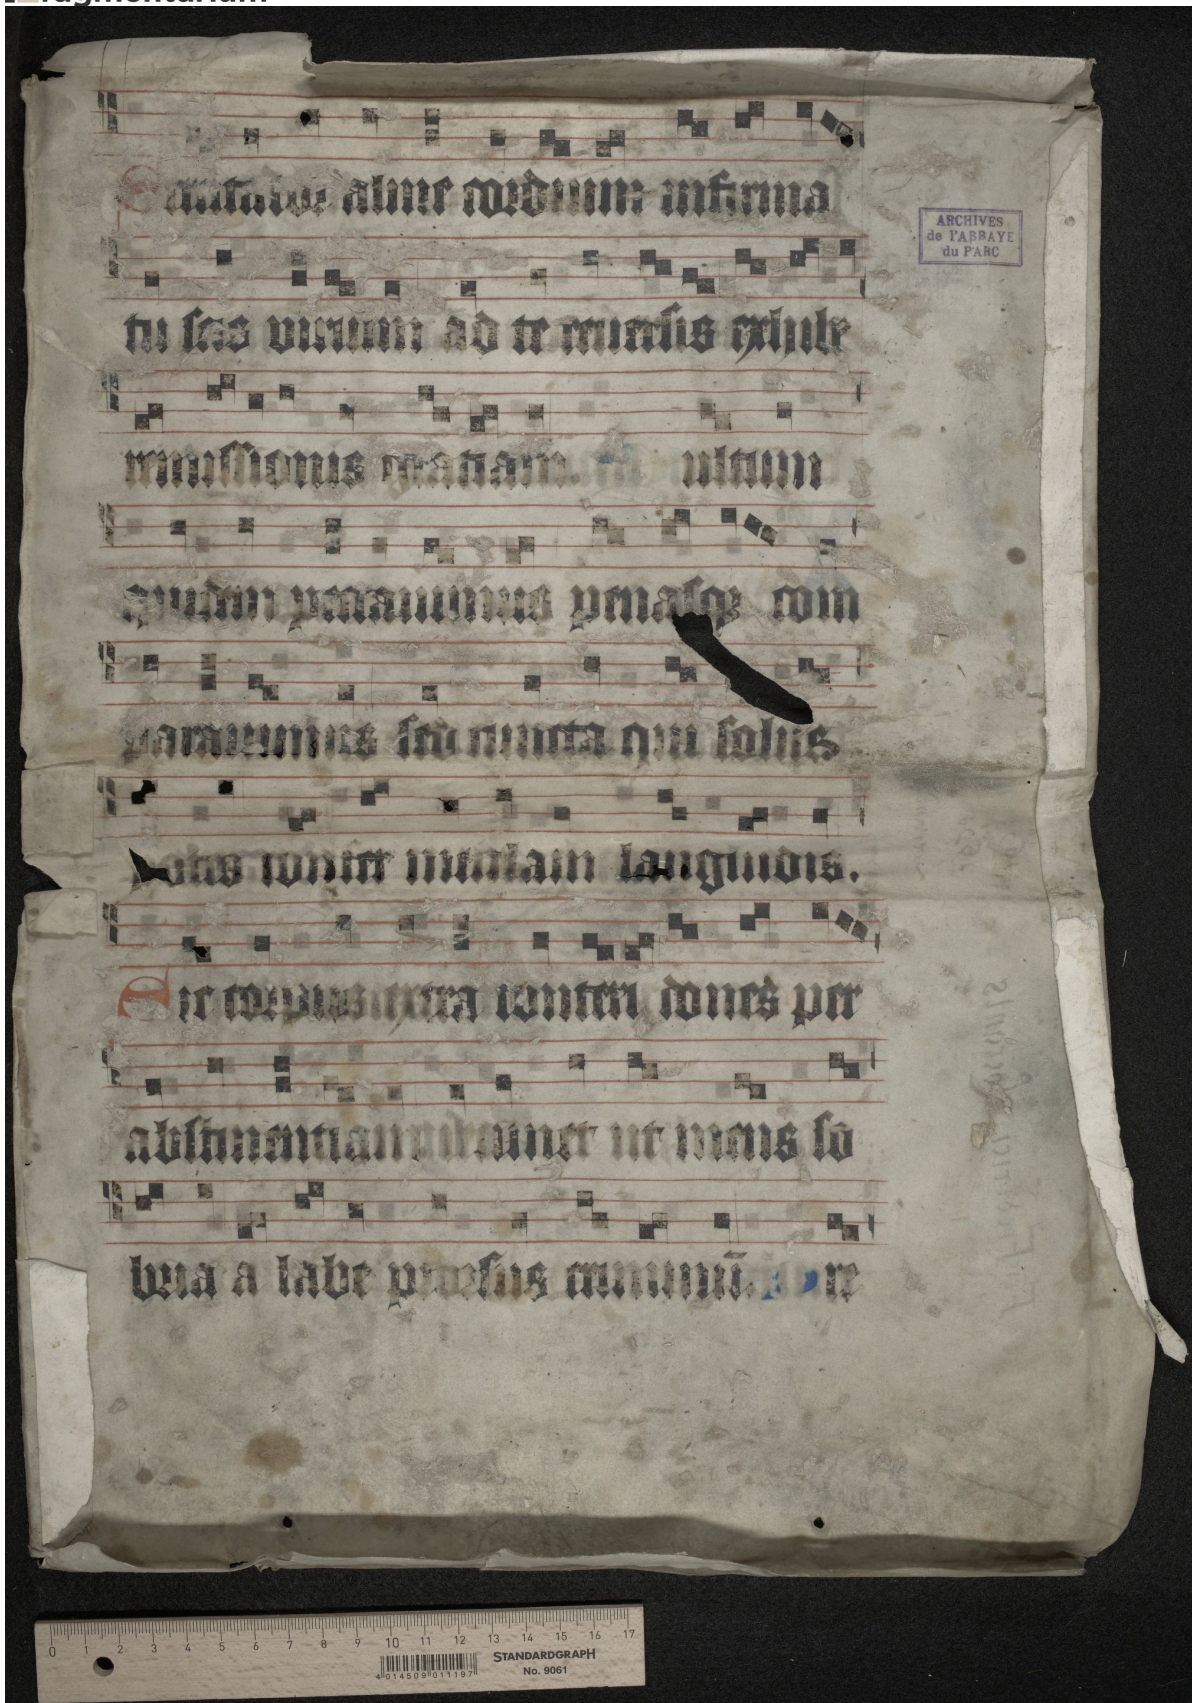 ragmentarium
Scrutator alme cordium infirma
tu scis virium ad te reuersis exhibe
remissionis gratiam. M ultum
quidem peccauimus penasqz com
parauimus sed cuncta qui solus
potes confer medelam languidis.
Sic corpus extra conteri dones per
abstinentiam ieiunet ut mens so
bria a labe prorsus criminū. re
ARCHIVES
de l'ABBAYE
du PARC
0 1 2 3 4 5 6 7 8 9 10 11 12 13 14 15 16 17
STANDARDGRAPH
No. 9061
4 014509 011197